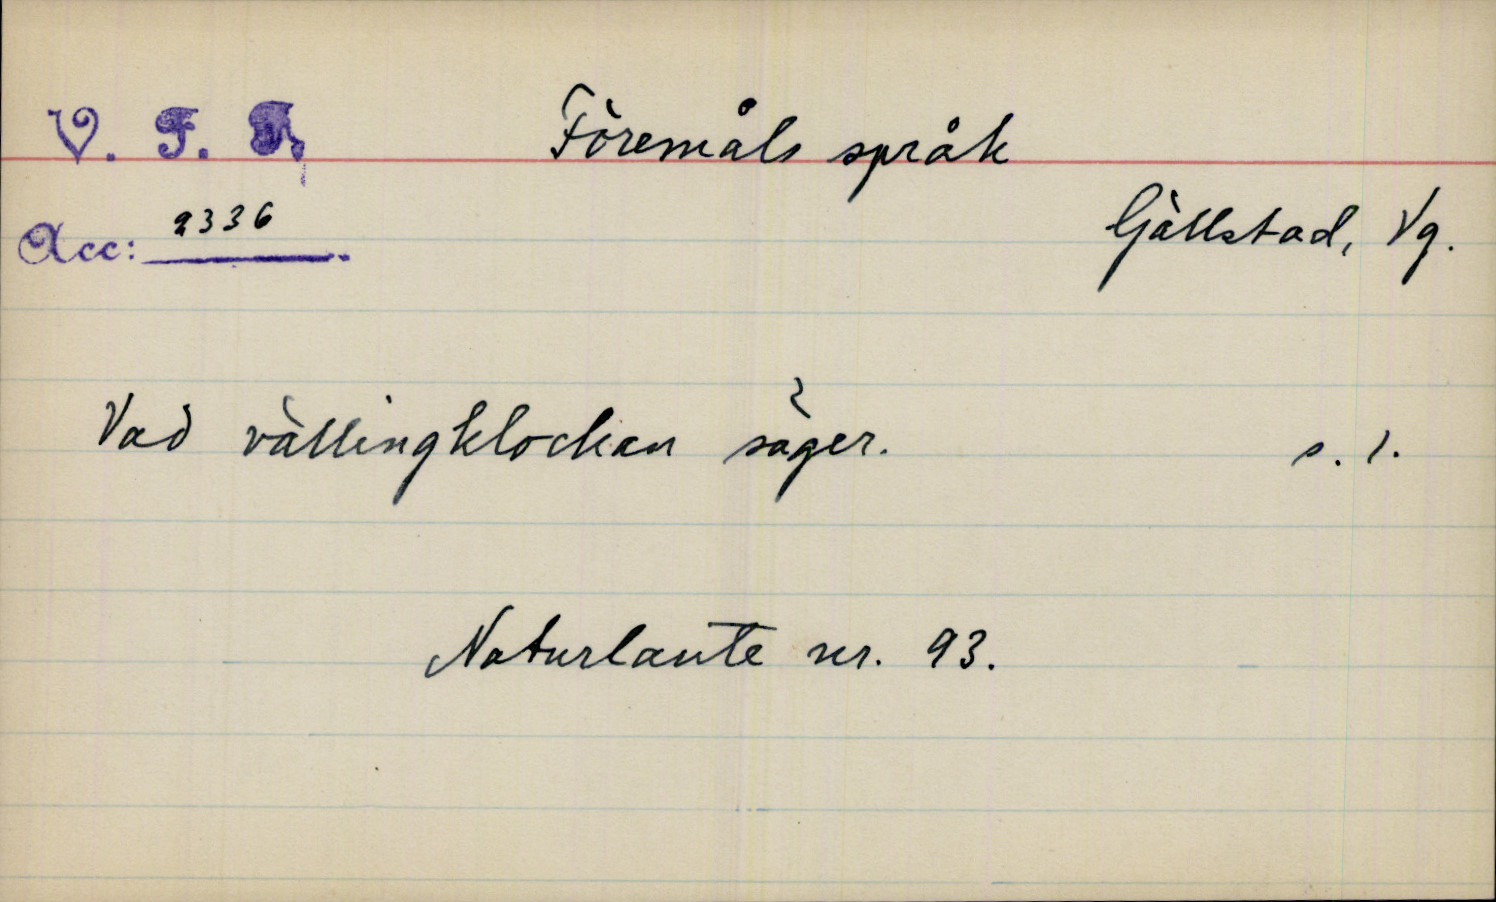 V. F. F.
Föremåls språk
Acc: 2336.
Gällstad, Vg.
Vad vällingklockan säger. s. 1.
Naturlaute nr. 93.